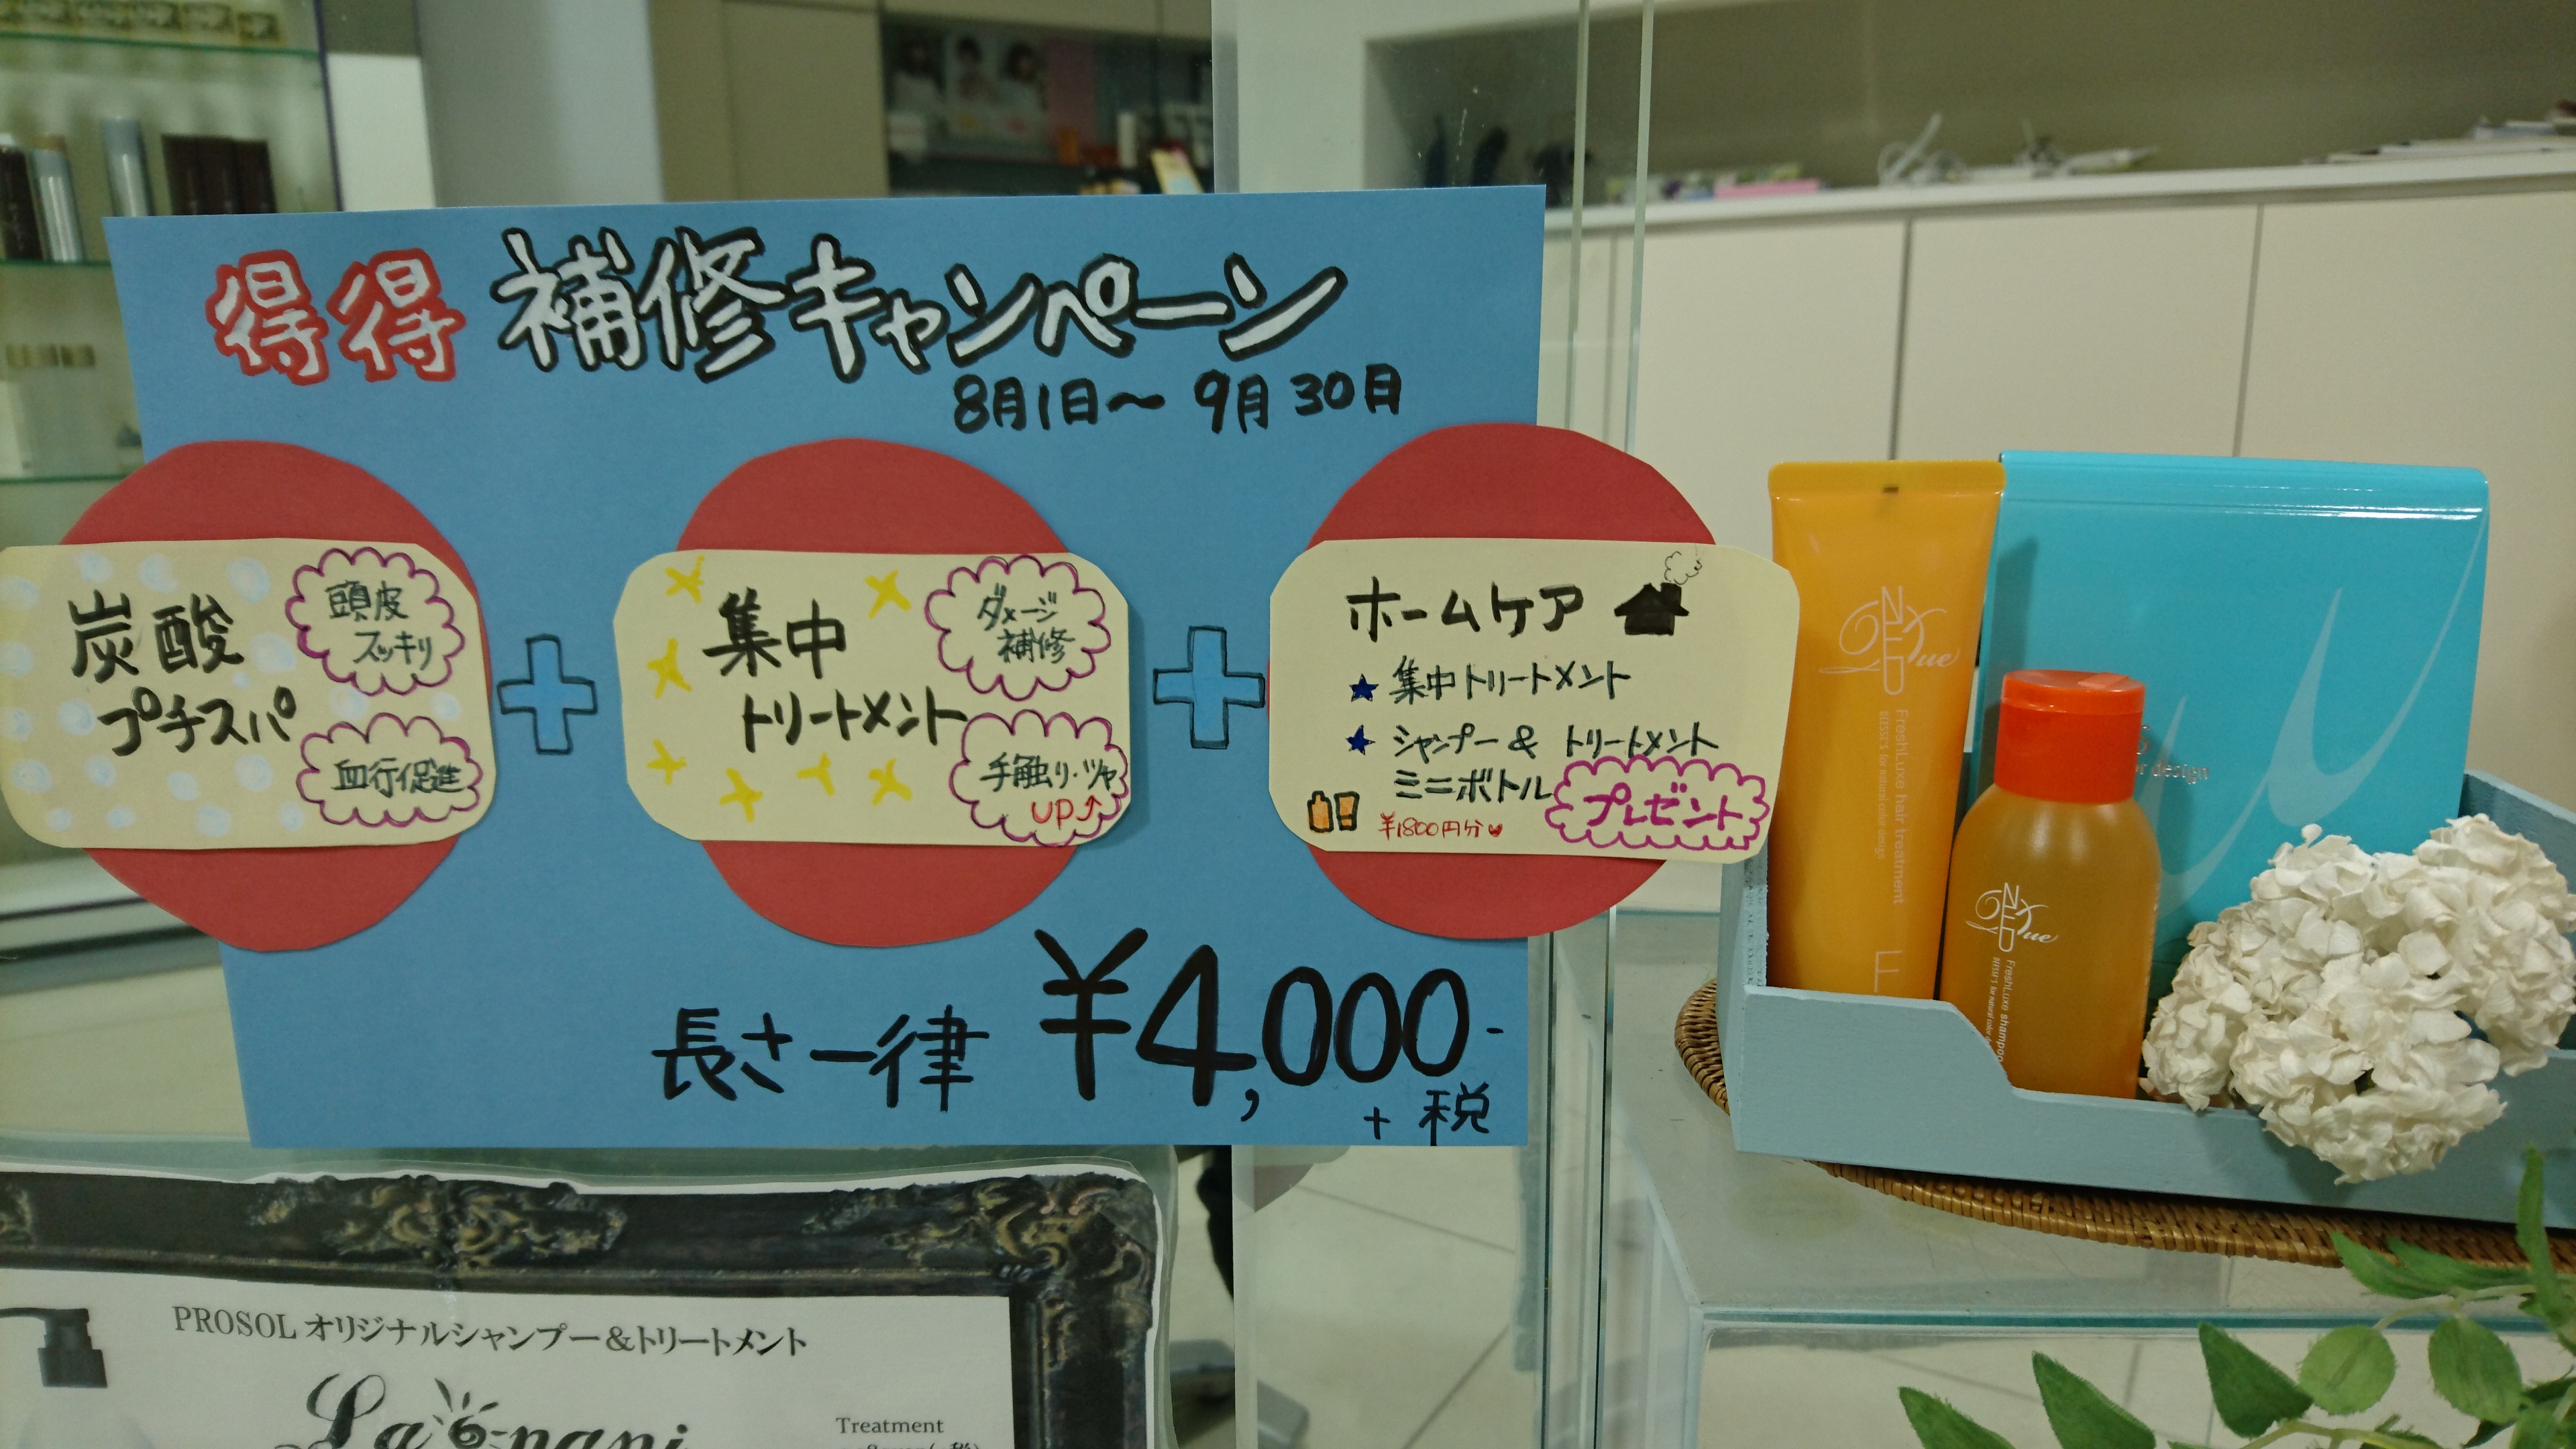 得得 補修キャンペーン
8月1日〜9月30日
炭酸
プチスパ
頭皮
スッキリ
血行促進
+
集中
トリートメント
ダメージ
補修
手触り・ツヤ
UP↑
+
ホームケア
★ 集中トリートメント
★ シャンプー & トリートメント
ミニボトル
¥1800円分♥
プレゼント
長さ一律 ¥4,000-
+ 税
PROSOL オリジナルシャンプー&トリートメント
Treatment
NEDXue
FreshLuxe hair treatment
for natural color design
NEDXue
FreshLuxe shampoo
for natural color
r design